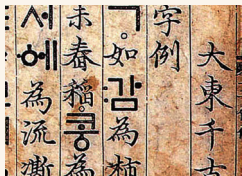 大東千古
字例
ㄱ。如감為柿
未舂稻。콩為
서에為流凘